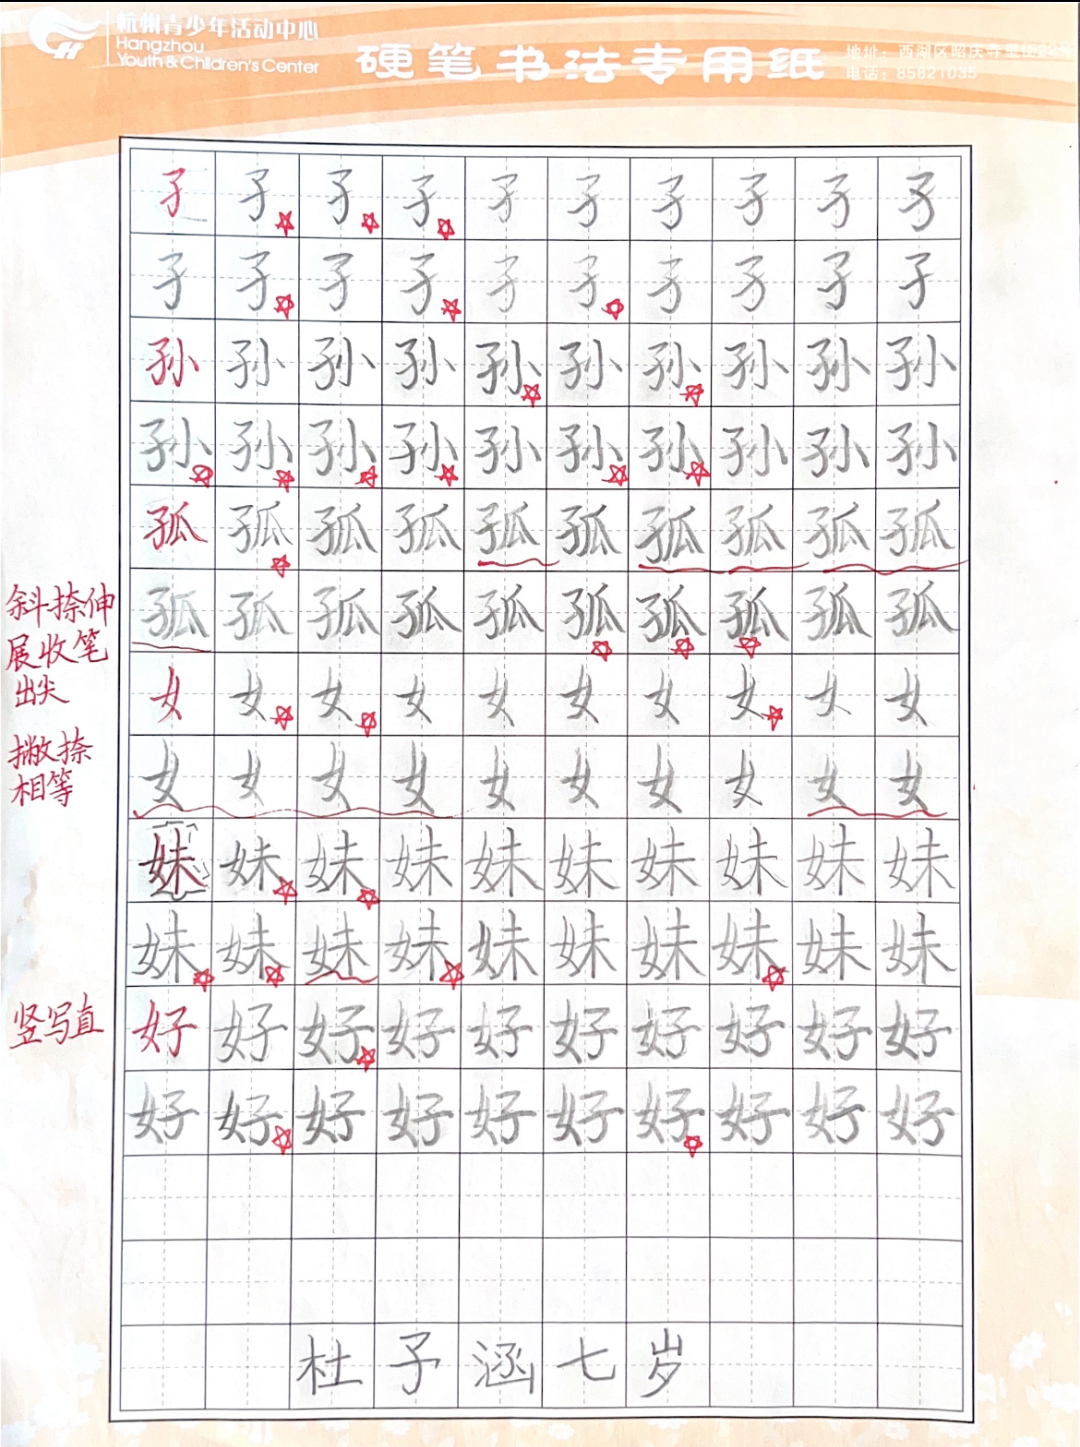 杭州青少年活动中心
Hangzhou
Youth & Children's Center
硬笔书法专用纸
地址：西湖区昭庆寺里街22号
电话：85821035
孑 孑 孑 孑 孑 孑 孑 孑 孑 孑
孑 孑 孑 孑 孑 孑 孑 孑 孑 孑
孙 孙 孙 孙 孙 孙 孙 孙 孙 孙
孙 孙 孙 孙 孙 孙 孙 孙 孙 孙
孤 孤 孤 孤 孤 孤 孤 孤 孤 孤
斜捺伸
展收笔
出尖
孤 孤 孤 孤 孤 孤 孤 孤 孤 孤
女 女 女 女 女 女 女 女 女 女
撇捺
相等
女 女 女 女 女 女 女 女 女 女
妹 妹 妹 妹 妹 妹 妹 妹 妹 妹
妹 妹 妹 妹 妹 妹 妹 妹 妹 妹
竖写直
好 好 好 好 好 好 好 好 好 好
好 好 好 好 好 好 好 好 好 好
杜子涵七岁